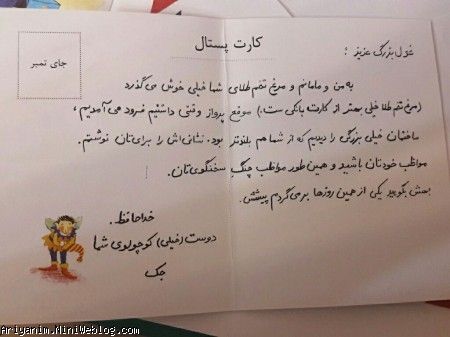 کارت پستال
جای تمبر
غول بزرگ عزیز :
به من و مامانم و مرغ تخم طلای شما خیلی خوش می گذرد
(مرغ تخم طلا خیلی بهتر از کارت بانکی ست.) موقع پرواز وقتی داشتیم فرود می آمدیم ،
ساختمان خیلی بزرگی را دیدیم که از شما هم بلندتر بود. نشانی اش را برای تان نوشتم.
مواظب خودتان باشید و همین طور مواظب چنگ سخنگوی تان.
بهش بگویید یکی از همین روزها بر می گردم پیشش.
خداحافظ.
دوست (خیلی) کوچولوی شما
جک
Ariyanim.MiniWeblog.com